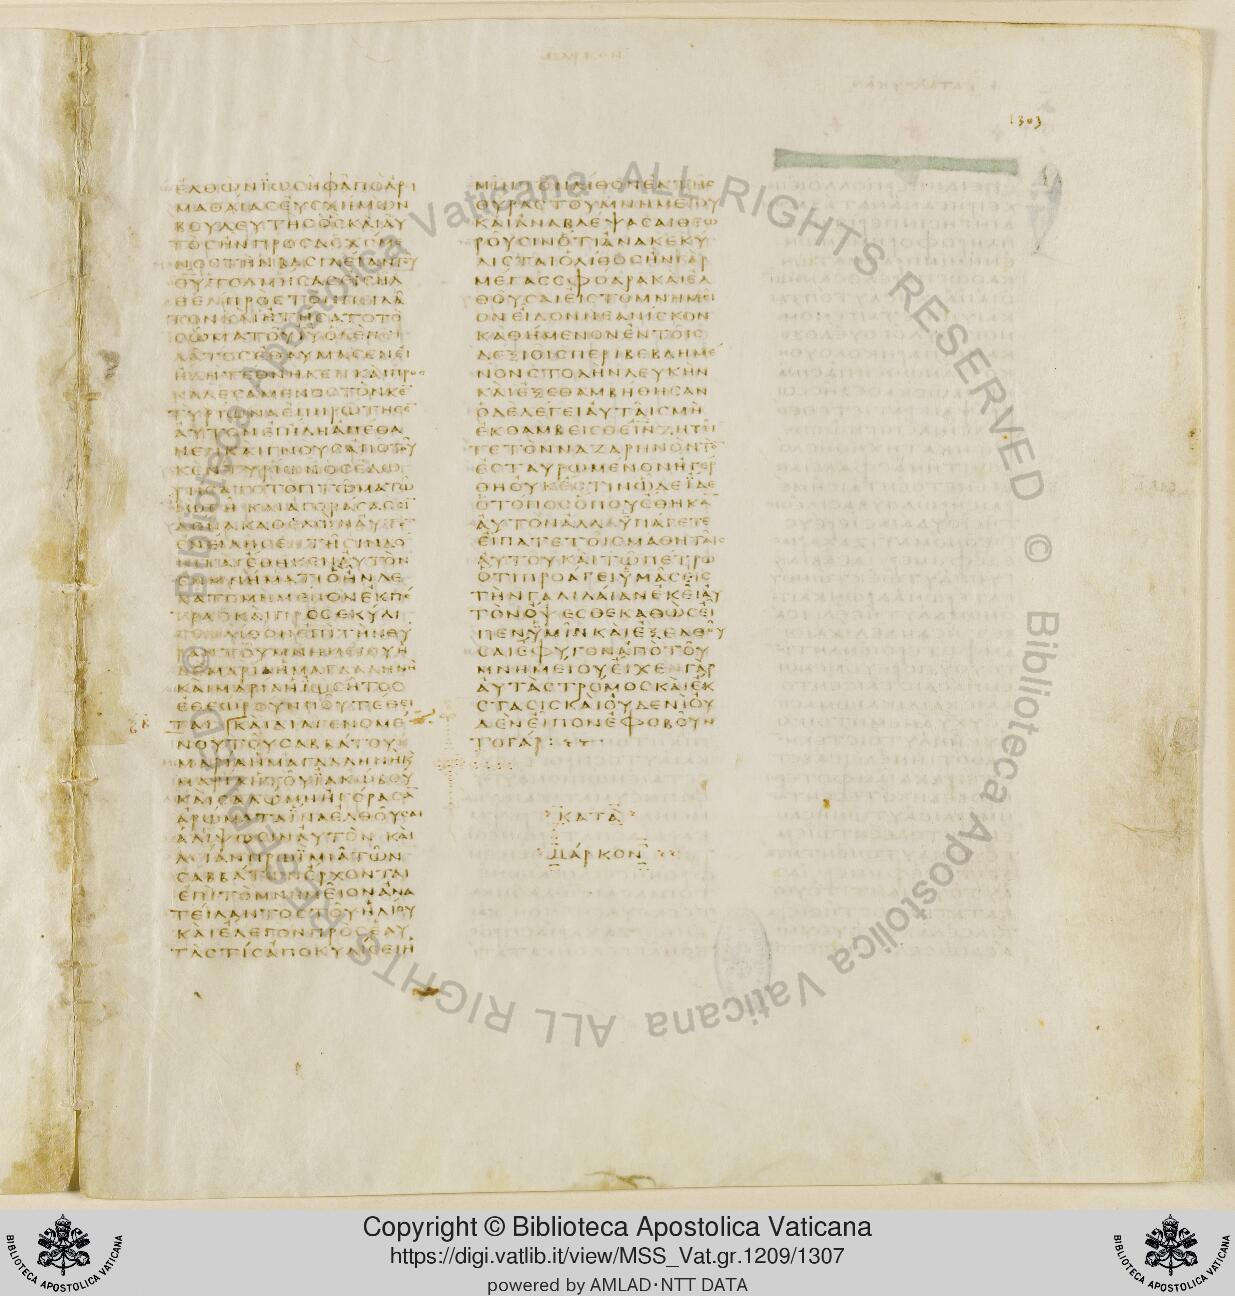 1303
ΕΛΘΩΝΙΩΣΗΦΑΠΟΑΡΙ
ΜΑΘΑΙΑΣΕΥΣΧΗΜΩΝ
ΒΟΥΛΕΥΤΗΣΟΣΚΑΙΑΥ
ΤΟΣΗΝΠΡΟΣΔΕΧΟΜΕ
ΝΟΣΤΗΝΒΑΣΙΛΕΙΑΝΤΟΥ
ΘΥΤΟΛΜΗΣΑΣΕΙΣΗΛ
ΘΕΝΠΡΟΣΤΟΝΠΕΙΛΑ
ΤΟΝΚΑΙΗΤΗΣΑΤΟΤΟ
ΣΩΜΑΤΟΥΙΥΟΔΕΠΕΙ
ΛΑΤΟΣΕΘΑΥΜΑΣΕΝΕΙ
ΗΔΗΤΕΘΝΗΚΕΝΚΑΙΠΡΟΣ
ΚΑΛΕΣΑΜΕΝΟΣΤΟΝΚΕ
ΤΥΡΙΩΝΑΕΠΗΡΩΤΗΣΕ
ΑΥΤΟΝΕΙΗΔΗΑΠΕΘΑ
ΝΕΝΚΑΙΓΝΟΥΣΑΠΟΤΟΥ
ΚΕΝΤΥΡΙΩΝΟΣΕΔΩ
ΡΗΣΑΤΟΤΟΠΤΩΜΑΤΩ
ΙΩΣΗΚΑΙΑΓΟΡΑΣΑΣΣΙ
ΔΟΝΑΚΑΘΕΛΩΝΑΥΤΟ
ΕΝΕΙΛΗΣΕΝΤΗΣΙΝΔΟ
ΝΙΚΑΙΕΘΗΚΕΝΑΥΤΟΝ
ΕΝΜΝΗΜΑΤΙΟΗΝΛΕ
ΛΑΤΟΜΗΜΕΝΟΝΕΚΠΕ
ΤΡΑΣΚΑΙΠΡΟΣΕΚΥΛΙ
ΣΕΝΛΙΘΟΝΕΠΙΤΗΝΘΥ
ΡΑΝΤΟΥΜΝΗΜΕΙΟΥΗ
ΔΕΜΑΡΙΑΗΜΑΓΔΑΛΗΝΗ
ΚΑΙΜΑΡΙΑΗΙΩΣΗΤΟΣ
ΕΘΕΩΡΟΥΝΠΟΥΤΕΘΕΙ
ΤΑΙ ΚΑΙΔΙΑΓΕΝΟΜΕ
ΝΟΥΤΟΥΣΑΒΒΑΤΟΥ
ΜΑΡΙΑΗΜΑΓΔΑΛΗΝΗΚ
ΜΑΡΙΑΗΤΟΥΙΑΚΩΒΟΥ
ΚΑΙΣΑΛΩΜΗΗΓΟΡΑΣΑ
ΑΡΩΜΑΤΑΙΝΑΕΛΘΟΥΣΑΙ
ΑΛΙΨΩΣΙΝΑΥΤΟΝ ΚΑΙ
ΛΙΑΝΠΡΩΙΜΙΑΤΩΝ
ΣΑΒΒΑΤΩΝΕΡΧΟΝΤΑΙ
ΕΠΙΤΟΜΝΗΜΕΙΟΝΑΝΑ
ΤΕΙΛΑΝΤΟΣΤΟΥΗΛΙΟΥ
ΚΑΙΕΛΕΓΟΝΠΡΟΣΕΑΥ
ΤΑΣΤΙΣΑΠΟΚΥΛΙΣΕΙΗ
ΜΙΝΤΟΝΛΙΘΟΝΕΚΤΗΣ
ΘΥΡΑΣΤΟΥΜΝΗΜΕΙΟΥ
ΚΑΙΑΝΑΒΛΕΨΑΣΑΙΘΕΩ
ΡΟΥΣΙΝΟΤΙΑΝΑΚΕΚΥ
ΛΙΣΤΑΙΟΛΙΘΟΣΗΝΓΑΡ
ΜΕΓΑΣΣΦΟΔΡΑΚΑΙΕΛ
ΘΟΥΣΑΙΕΙΣΤΟΜΝΗΜΕΙ
ΟΝΕΙΔΟΝΝΕΑΝΙΣΚΟΝ
ΚΑΘΗΜΕΝΟΝΕΝΤΟΙΣ
ΔΕΞΙΟΙΣΠΕΡΙΒΕΒΛΗΜΕ
ΝΟΝΣΤΟΛΗΝΛΕΥΚΗΝ
ΚΑΙΕΞΕΘΑΜΒΗΘΗΣΑΝ
ΟΔΕΛΕΓΕΙΑΥΤΑΙΣΜΗ
ΕΚΘΑΜΒΕΙΣΘΕΙΝΖΗΤΕΙ
ΤΕΤΟΝΝΑΖΑΡΗΝΟΝΤΟ
ΕΣΤΑΥΡΩΜΕΝΟΝΗΓΕΡ
ΘΗΟΥΚΕΣΤΙΝΩΔΕΙΔΕ
ΟΤΟΠΟΣΟΠΟΥΕΘΗΚΑ
ΑΥΤΟΝΑΛΛΑΥΠΑΓΕΤΕ
ΕΙΠΑΤΕΤΟΙΣΜΑΘΗΤΑΙΣ
ΑΥΤΟΥΚΑΙΤΩΠΕΤΡΩ
ΟΤΙΠΡΟΑΓΕΙΥΜΑΣΕΙΣ
ΤΗΝΓΑΛΙΛΑΙΑΝΕΚΕΙΑΥ
ΤΟΝΟΨΕΣΘΕΚΑΘΩΣΕΙ
ΠΕΝΥΜΙΝΚΑΙΕΞΕΛΘΟΥ
ΣΑΙΕΦΥΓΟΝΑΠΟΤΟΥ
ΜΝΗΜΕΙΟΥΕΙΧΕΝΓΑΡ
ΑΥΤΑΣΤΡΟΜΟΣΚΑΙΕΚ
ΣΤΑΣΙΣΚΑΙΟΥΔΕΝΙΟΥ
ΔΕΝΕΙΠΟΝΕΦΟΒΟΥΝ
ΤΟΓΑΡ:
ΚΑΤΑ
ΜΑΡΚΟΝ
© Biblioteca Apostolica Vaticana ALL RIGHTS RESERVED © Biblioteca Apostolica Vaticana ALL RIGHTS RESERVED
Copyright © Biblioteca Apostolica Vaticana
https://digi.vatlib.it/view/MSS_Vat.gr.1209/1307
powered by AMLAD·NTT DATA
BIBLIOTECA APOSTOLICA VATICANA
BIBLIOTECA APOSTOLICA VATICANA